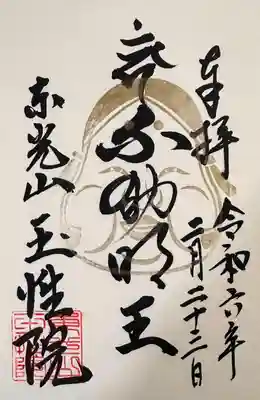 奉拝 令和六年二月二十三日
助明王
東光山 玉性院